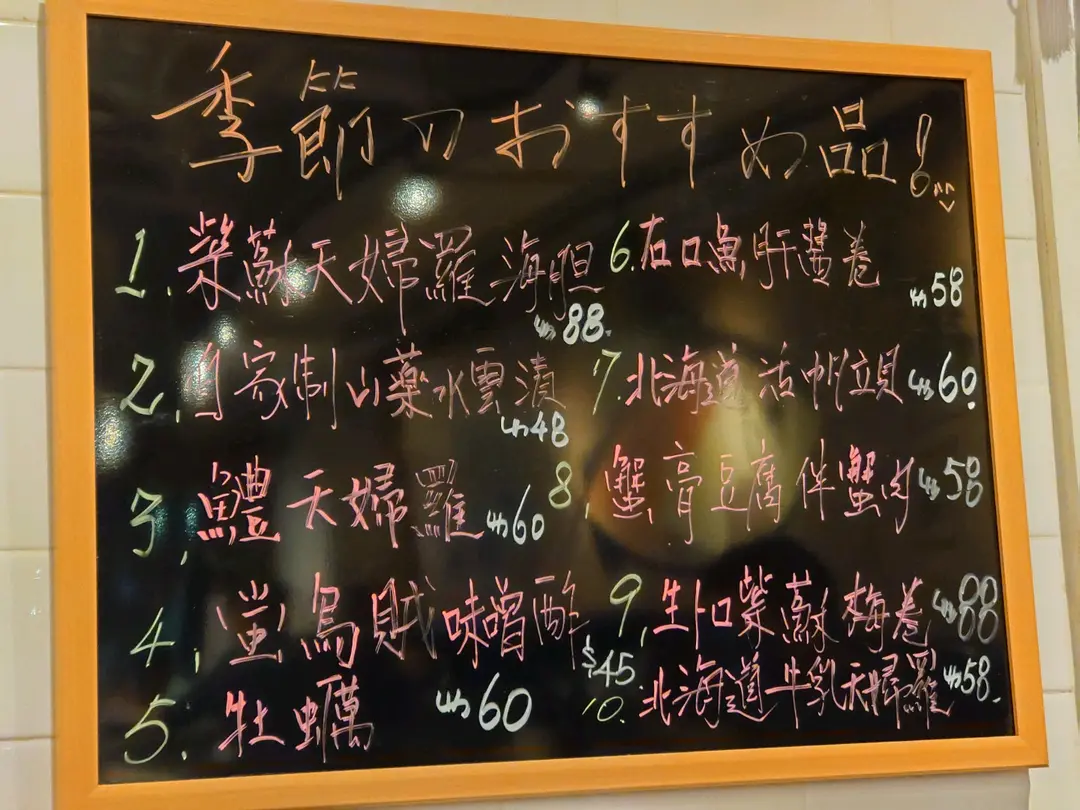 季節のおすすめ品!
1. 紫蘇天婦羅海胆 $88.
2. 自家制山藥水雲漬 $48
3. 鱧天婦羅 $60
4. 蛍烏賊味噌酢 $45
5. 牡蠣 $60
6. 左口魚肝醬卷 $58
7. 北海道活帆立貝 $60
8. 蟹膏豆腐伴蟹肉 $58
9. 生トロ紫蘇梅卷 $88
10. 北海道牛乳天婦羅 $58